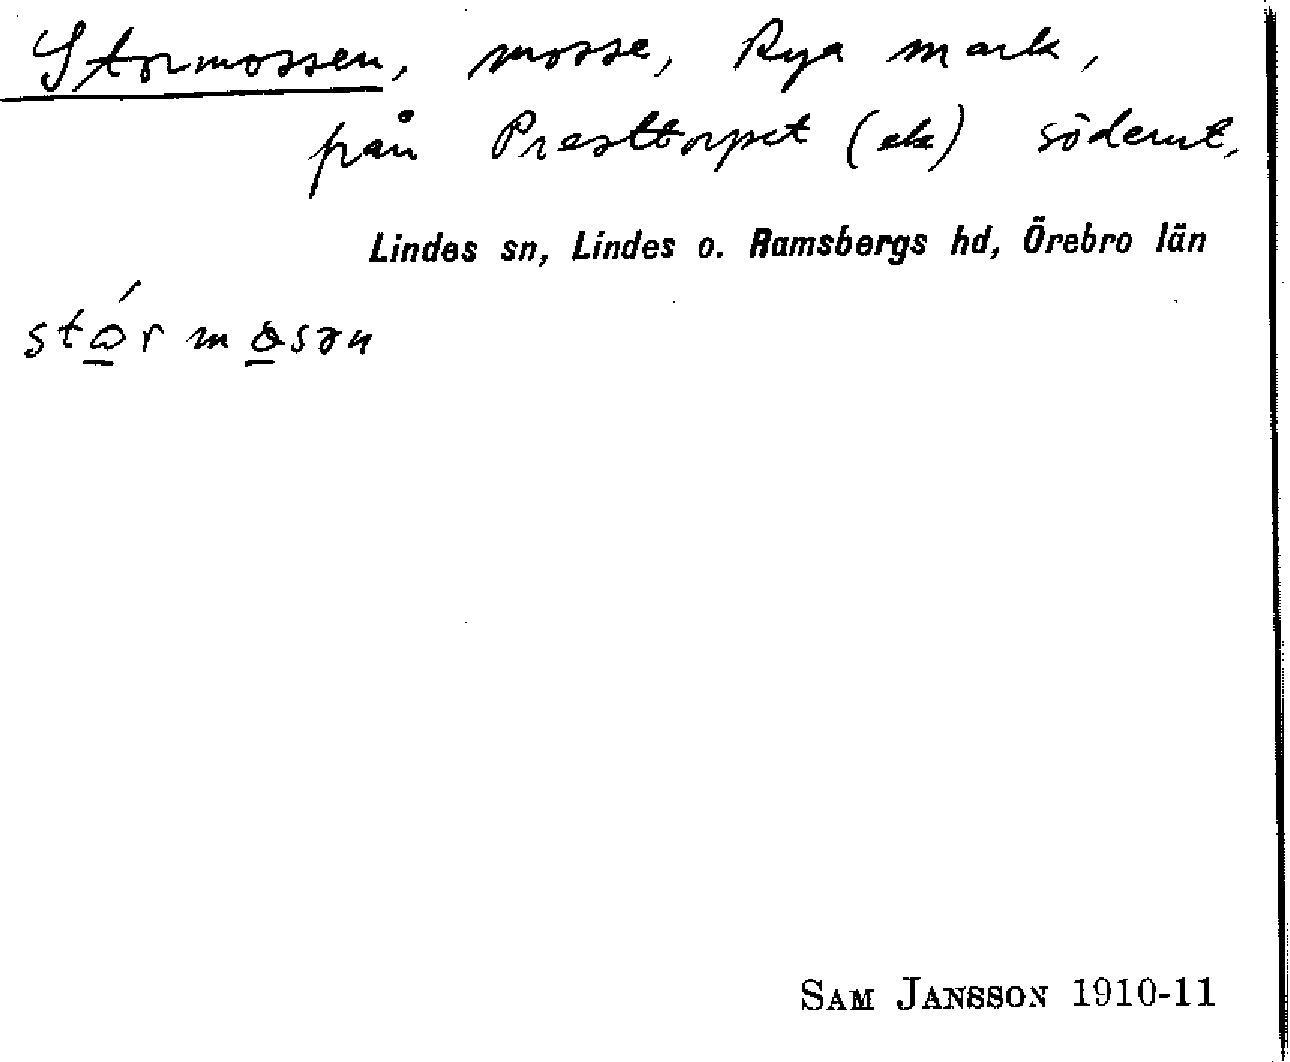 Stormossen, mosse, Rya mark,
från Presttorpet (ek) söderut,
Lindes sn, Lindes o. Ramsbergs hd, Örebro län
stó̲r mo̲sən
SAM JANSSON 1910-11